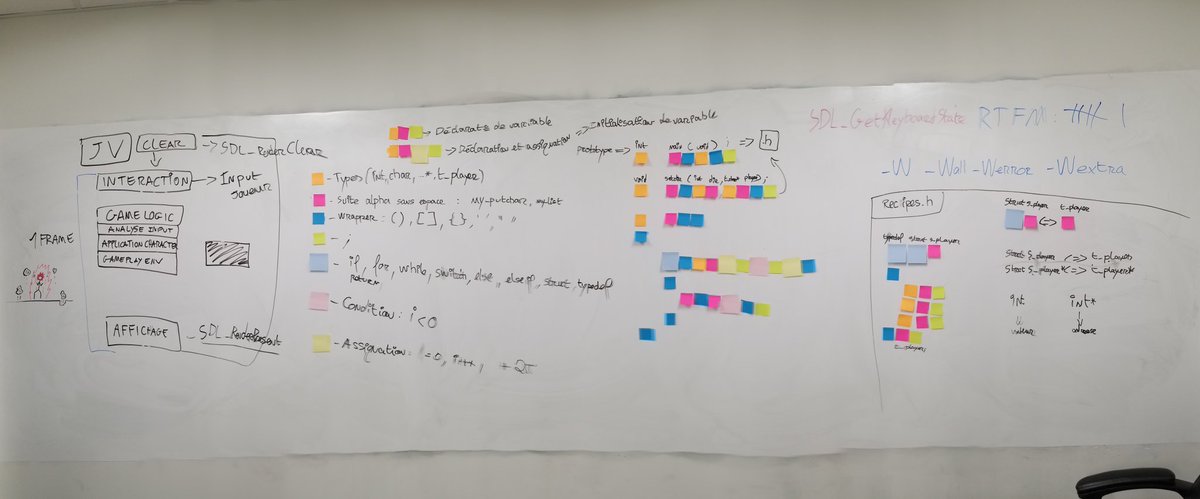 JV
CLEAR -> SDL_RenderClear
INTERACTION -> Input
Joueur
GAME LOGIC
ANALYSE INPUT
APPLICATION CHARACTER
GAMEPLAY ENV
1 FRAME
AFFICHAGE - SDL_RenderPresent
-> Déclarat° de variable
-> Déclaration et assignation => Initialisation de variable
- Types (int, char, -*, t_player)
- Suite alpha sans espace : my-putchar, my-list
- Wrapper : (), [], {}, ' ', " "
- ;
- if, for, while, switch, else, else if, struct, typedef
return
- Condition : i<0
- Assignation : =0, i++,
prototype => int main (void) ; => .h
void
SDL_GetKeyboardState RTFM : |
-W -Wall -Werror -Wextra
Recipes.h
struct s_player t_player
<=>
typedef struct s_player
struct s_player <=> t_player
struct s_player* <=> t_player*
int int*